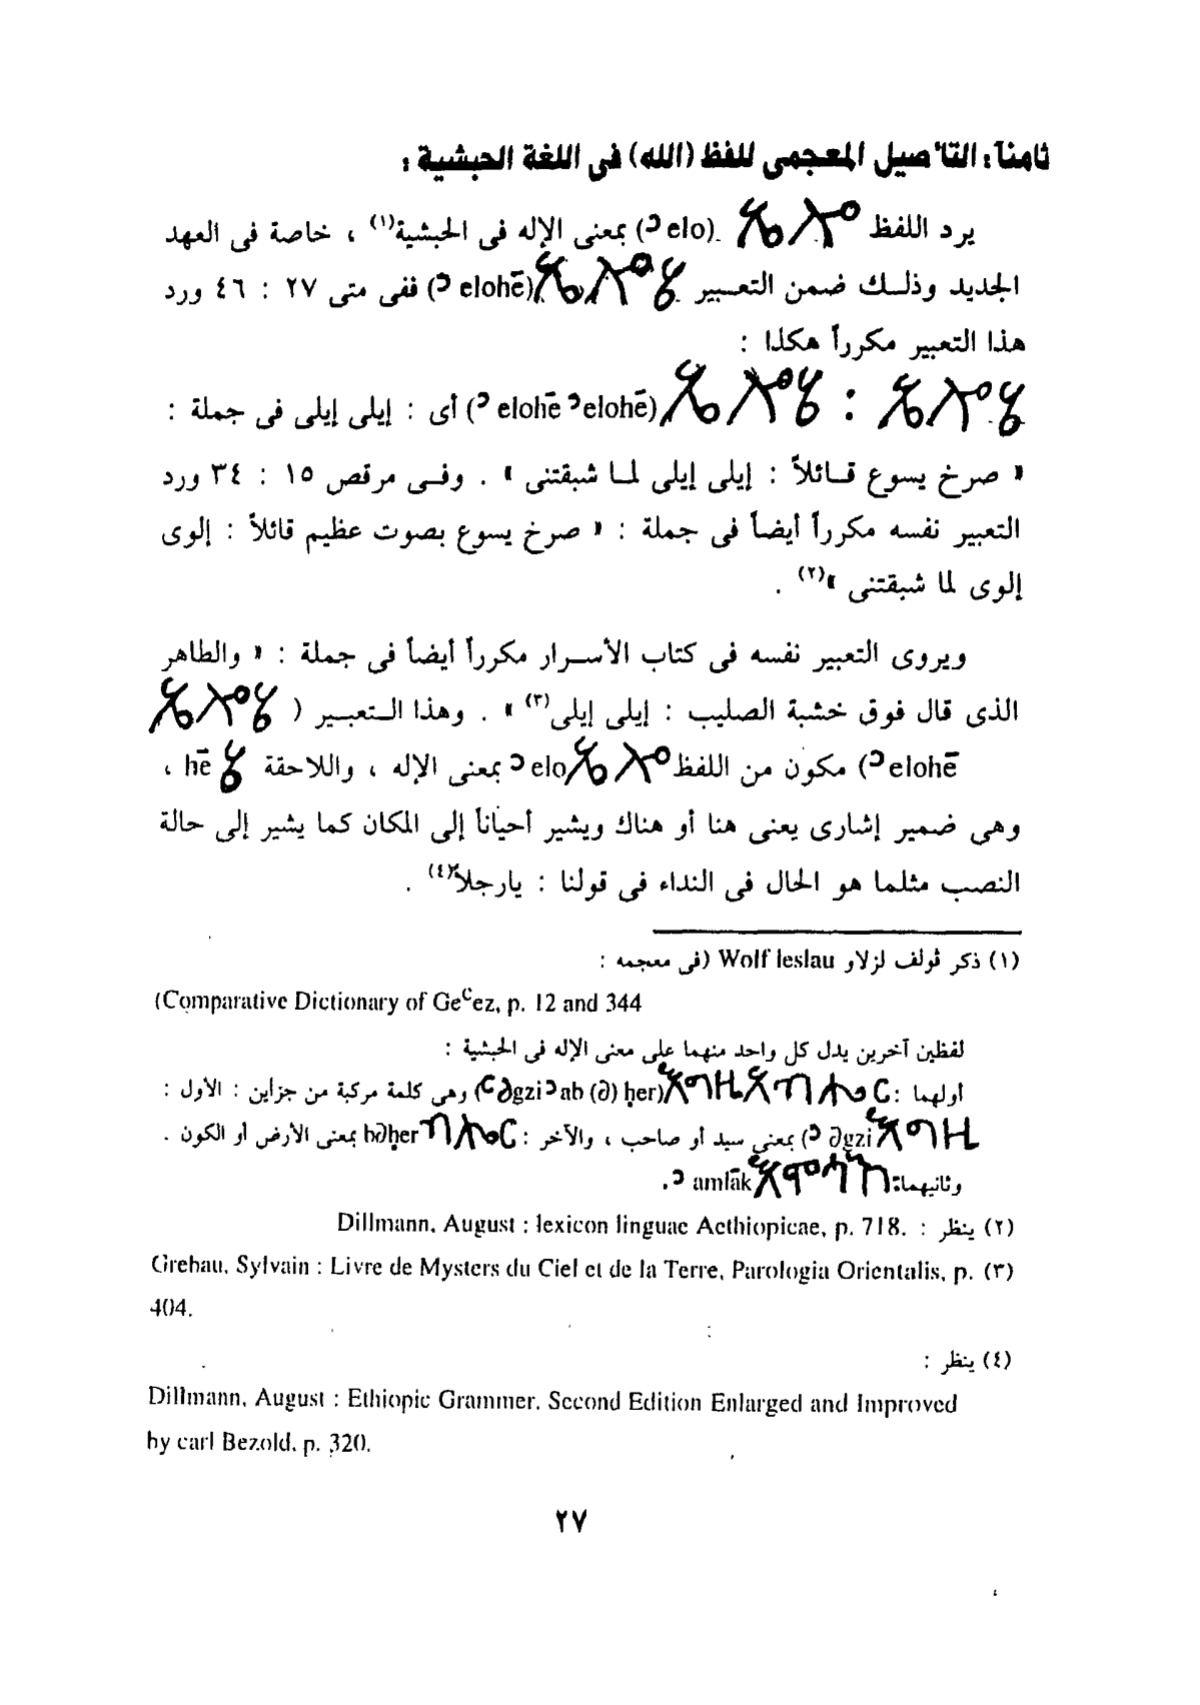 ثامناً: التا'صيل المعجمى للفظ (الله) فى اللغة الحبشية :
يرد اللفظ ኤሎ (ɔelo) بمعنى الإله فى الحبشية(١) ، خاصة فى العهد
الجديد وذلــك ضمن التعـبـير ኤሎሄ (ɔ elohē) ففى متى ٢٧ : ٤٦ ورد
هذا التعبير مكرراً هكذا :
ኤሎሄ : ኤሎሄ (ɔ elohē ɔelohē) أى : إيلى إيلى فى جملة :
« صرخ يسوع قــائلاً : إيلى إيلى لمـا شبقتنى » . وفـى مرقص ١٥ : ٣٤ ورد
التعبير نفسه مكرراً أيضاً فى جملة : « صرخ يسوع بصوت عظيم قائلاً : إلوى
إلوى لما شبقتنى »(٢) .
ويروى التعبير نفسه فى كتاب الأســرار مكرراً أيضاً فى جملة : « والطاهر
الذى قال فوق خشبة الصليب : إيلى إيلى(٣) » . وهذا الـتعبـير ( ኤሎሄ
ɔelohē) مكون من اللفظ ኤሎ ɔelo بمعنى الإله ، واللاحقة ሄ hē ،
وهى ضمير إشارى يعنى هنا أو هناك ويشير أحياناً إلى المكان كما يشير إلى حالة
النصب مثلما هو الحال فى النداء فى قولنا : يارجلا(٤) .
(١) ذكر ڤولف لزلاو Wolf leslau (فى معجمه :
(Comparative Dictionary of Geᶜez, p. 12 and 344
لفظين آخرين يدل كل واحد منهما على معنى الإله فى الحبشية :
أولهما : እግዚእብሔር (ɔəgziɔab (ə) ḥer) وهى كلمة مركبة من جزاين : الأول :
እግዚ (ɔ əgzi) بمعنى سيد أو صاحب ، والآخر : ብሔር bəḥer بمعنى الأرض أو الكون .
وثانيهما: አምላክ amlāk ɔ.
(٢) ينظر : Dillmann, August : lexicon linguae Aethiopicae, p. 718.
(٣) Grebau, Sylvain : Livre de Mysters du Ciel et de la Terre, Parologia Orientalis, p.
404.
(٤) ينظر :
Dillmann, August : Ethiopic Grammer. Second Edition Enlarged and Improved
by carl Bezold, p. 320.
٢٧